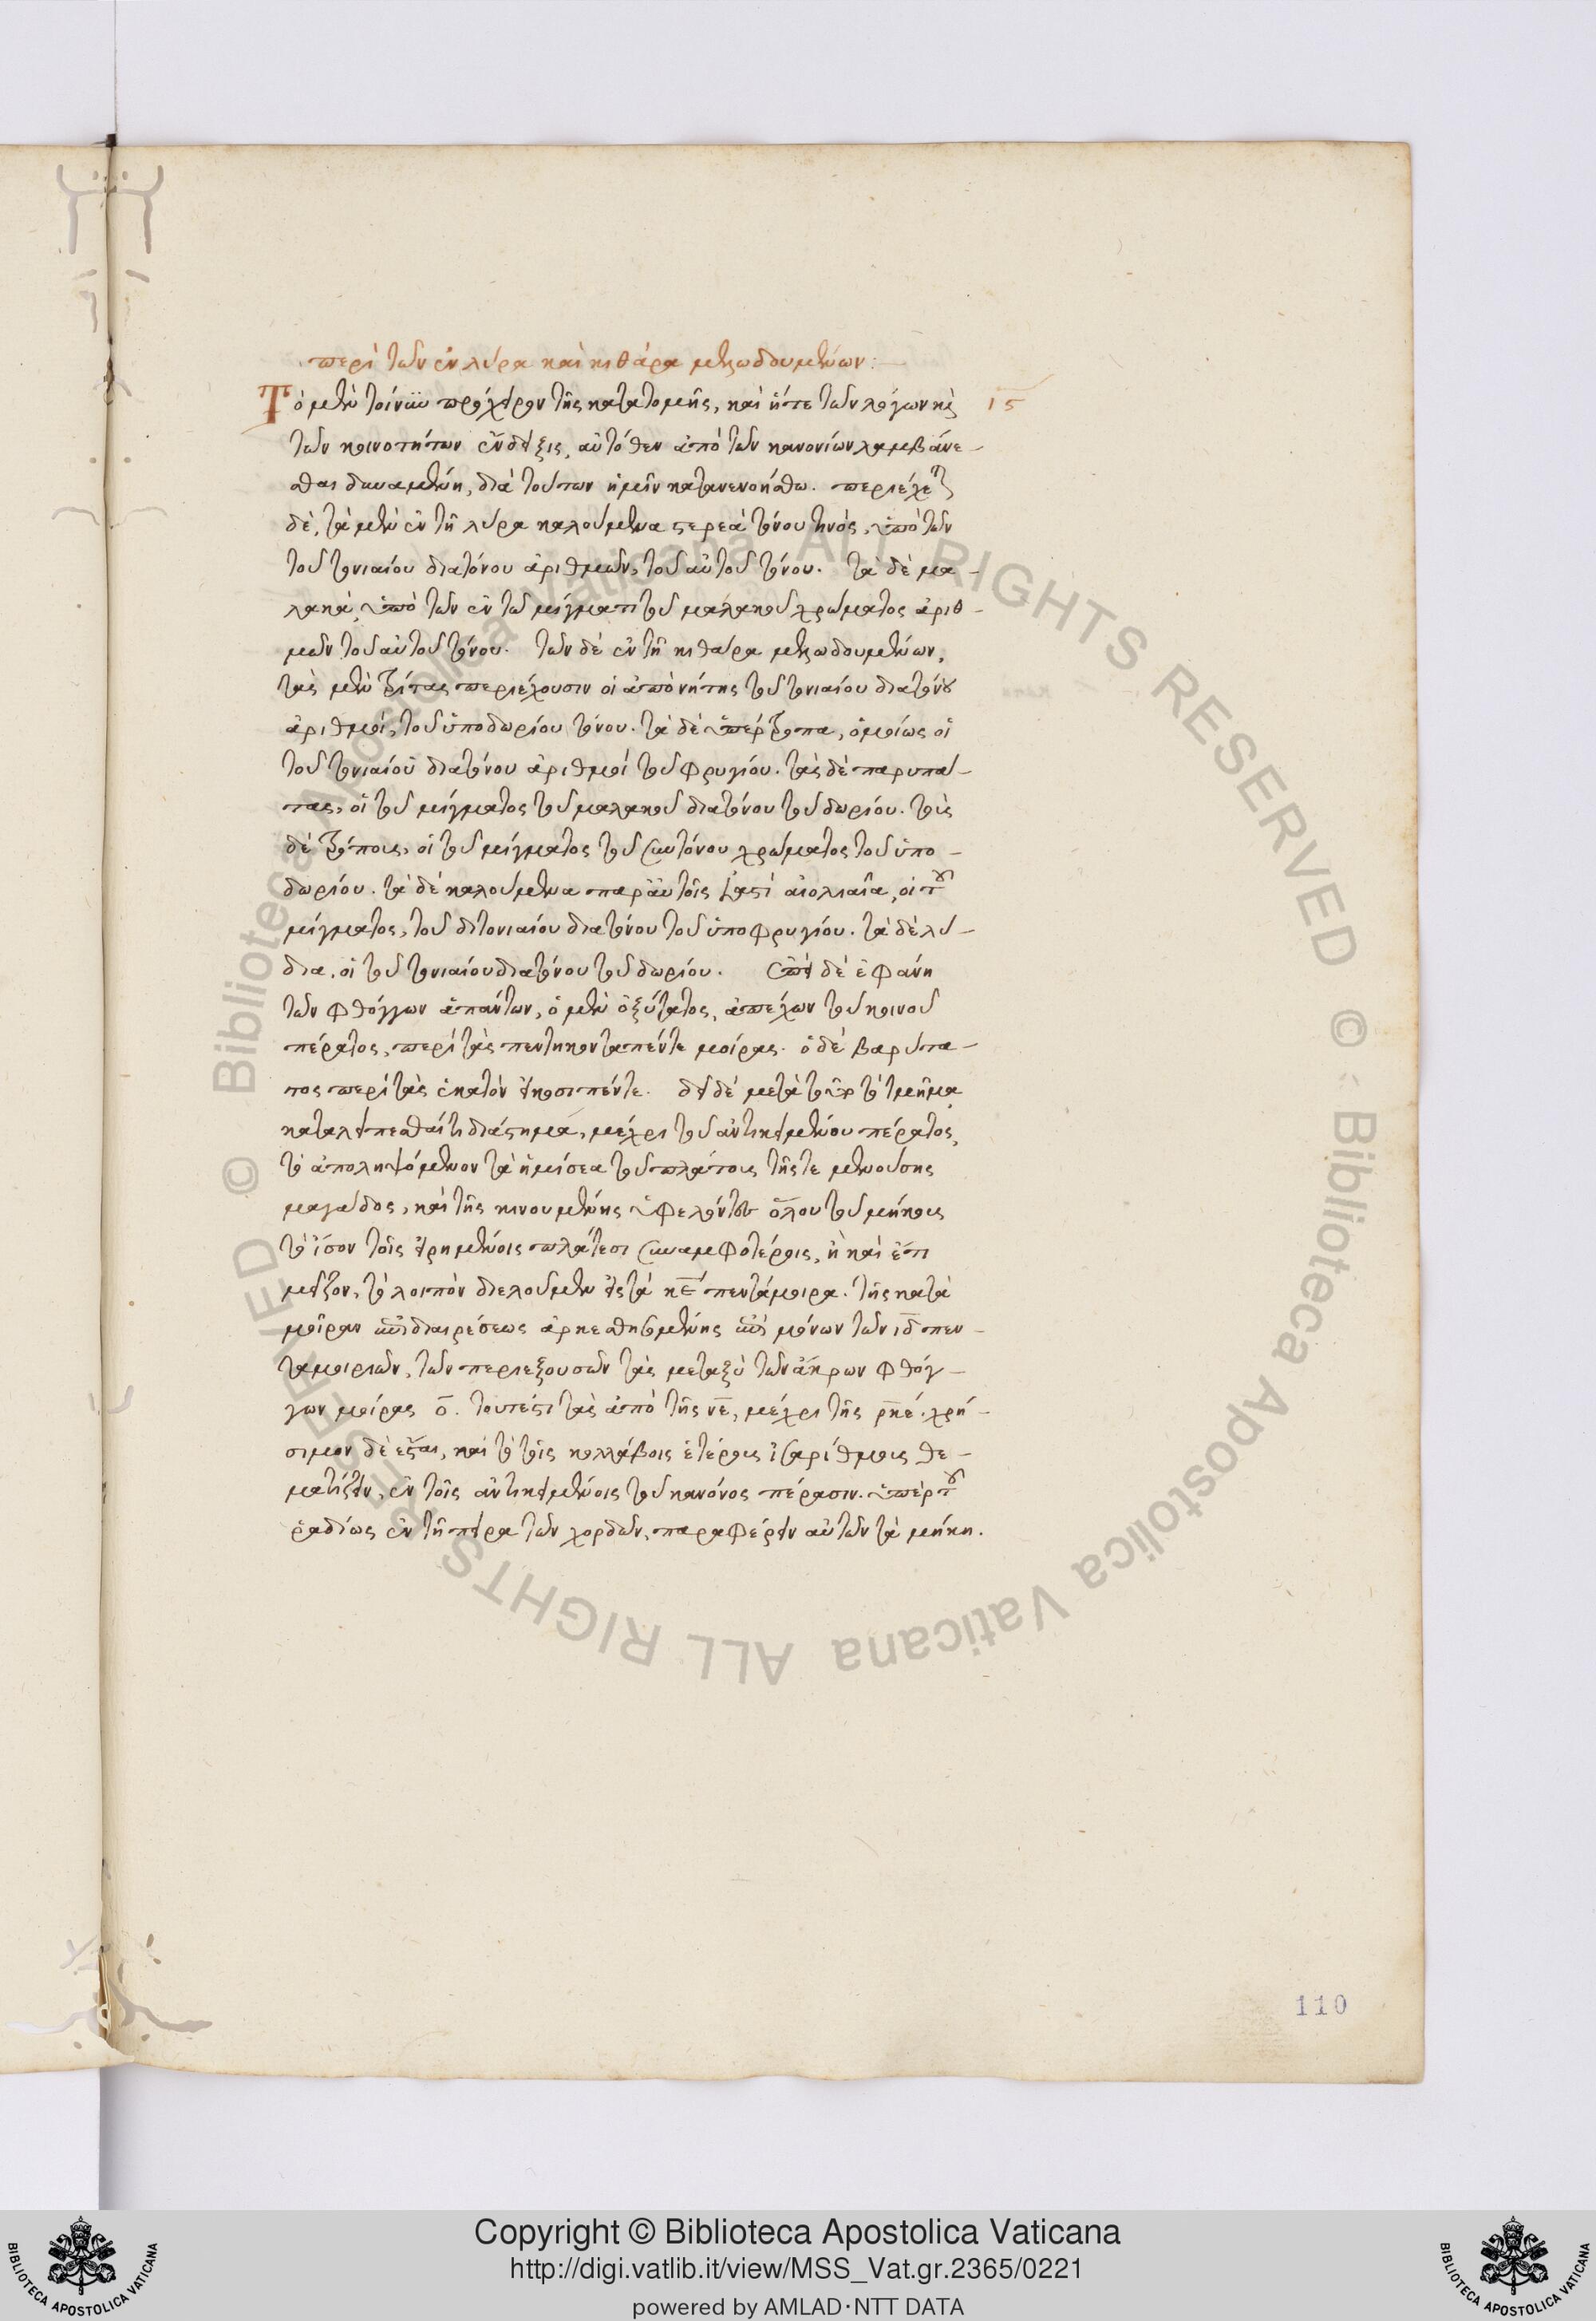 περὶ τῶν ἐν λύρα καὶ κιθάρα μελωδουμένων:
Τὸ μὲν τοίνυν πρόχειρον τῆς κατατομῆς, καὶ ἥτε τῶν λόγων κὶ ιε
τῶν κοινοτήτων ἔνδειξις, αὐτόθεν ἀπὸ τῶν κανονίων λαμβάνε-
σθαι δυναμένη, διὰ τούτων ἡμῖν κατανενοήσθω. περιέχεται
δὲ, τὰ μὲν ἐν τῆ λύρα καλούμενα στερεὰ τόνου τινός, ὑπὸ τῶν
τοῦ τονιαίου διατόνου ἀριθμῶν, τοῦ αὐτοῦ τόνου. τὰ δὲ μα-
λακὰ, ὑπὸ τῶν ἐν τῶ μίγματι τοῦ μαλακοῦ χρώματος ἀριθ-
μῶν τοῦ αὐτοῦ τόνου. τῶν δὲ ἐν τῆ κιθάρα μελωδουμένων,
τὰς μὲν τρίτας περιέχουσιν οἱ ἀπὸ νήτης τοῦ τονιαίου διατόνου
ἀριθμοί, τοῦ ὑποδωρίου τόνου. τὰ δὲ ὑπέρτροπα, ὁμοίως οἱ
τοῦ τονιαίου διατόνου ἀριθμοί τοῦ φρυγίου. τὰς δὲ παρυπά-
τας, οἱ τοῦ μίγματος τοῦ μαλακοῦ διατόνου τοῦ δωρίου. τοὺς
δὲ τρόπους, οἱ τοῦ μίγματος τοῦ συντόνου χρώματος τοῦ ὑπο-
δωρίου. τὰ δὲ καλούμενα παρ᾽ αὐτοῖς ἰαστὶ αἰολιαῖα, οἱ τοῦ
μίγματος, τοῦ διτονιαίου διατόνου τοῦ ὑποφρυγίου. τὰ δὲ λύ-
δια, οἱ τοῦ τονιαίου διατόνου τοῦ δωρίου. ἐπεὶ δὲ ἐφάνη
τῶν φθόγγων ἁπάντων, ὁ μὲν ὀξύτατος, ἀπέχων τοῦ κοινοῦ
πέρατος, περὶ τὰς πεντηκονταπέντε μοίρας. ὁ δὲ βαρύτα-
τος περὶ τὰς ἑκατὸν εἰκοσιπέντε. δεῖ δὲ μετὰ τοῦτο τὸ τμῆμα
καταλείπεσθαί τι διάστημα, μέχρι τοῦ ἀντικειμένου πέρατος,
τὸ ἀποληψόμενον τὰ ἡμίσεα τοῦ πλάτους τῆς τε μενούσης
μαγάδος, καὶ τῆς κινουμένης ὑφελόντες ὅλου τοῦ μήκους
τὸ ἴσον τοῖς εἰρημένοις πλάτεσι συναμφοτέροις, ἢ καὶ ἔτι
μεῖζον, τὸ λοιπὸν διελοῦμεν εἰς τὰ κε πεντάμοιρα. τῆς κατὰ
μοῖραν ἐπιδιαιρέσεως ἀρκεσθησομένης ἐπὶ μόνων τῶν ιδ πεν-
ταμοιριῶν, τῶν περιεξουσῶν τὰς μεταξὺ τῶν ἄκρων φθόγ-
γων μοίρας ο. τουτέστι τὰς ἀπὸ τῆς νε, μέχρι τῆς ρκε. χρή-
σιμον δὲ ἔσται, καὶ τὸ τοῖς κολλάβοις ἑτέροις ἰσαρίθμοις θε-
ματίζειν, ἐν τοῖς ἀντικειμένοις τοῦ κανόνος πέρασιν. ὑπὲρ τοῦ
ῥαδίως ἐν τῆ πείρα τῶν χορδῶν, παραφέρειν αὐτῶν τὰ μήκη.
110
Copyright © Biblioteca Apostolica Vaticana
http://digi.vatlib.it/view/MSS_Vat.gr.2365/0221
powered by AMLAD·NTT DATA
BIBLIOTECA APOSTOLICA VATICANA
BIBLIOTECA APOSTOLICA VATICANA
© Biblioteca Apostolica Vaticana ALL RIGHTS RESERVED © Biblioteca Apostolica Vaticana ALL RIGHTS RESERVED